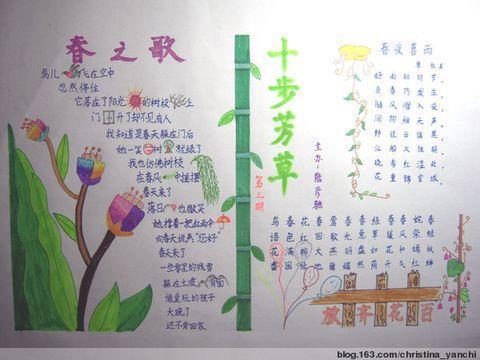 春之歌
鸟儿飞在空中
忽然停住
它落在了阳光的树枝上
门开了却不见有人
我知道是春天躲在门后
她一笑树就绿了
我也仿佛树枝
在春风中摇摆
春天来了
落日也微笑
她撑着一把红雨伞
向春天说声"您好"
春天来了
一些零星的残雪
躲在土坡背面
像爱玩的孩子
天晚了
还不肯回家
十步芳草
第三期
春夜喜雨
好雨知时节
当春乃发生
随风潜入夜
润物细无声
野径云俱黑
江船火独明
晓看红湿处
花重锦官城
鸟语花香
春色满园
花红柳绿
春回大地
莺歌燕舞
春光明媚
春意盎然
绿草如茵
春暖花开
春风和煦
姹紫嫣红
百花齐放
blog.163.com/christina_yanchi